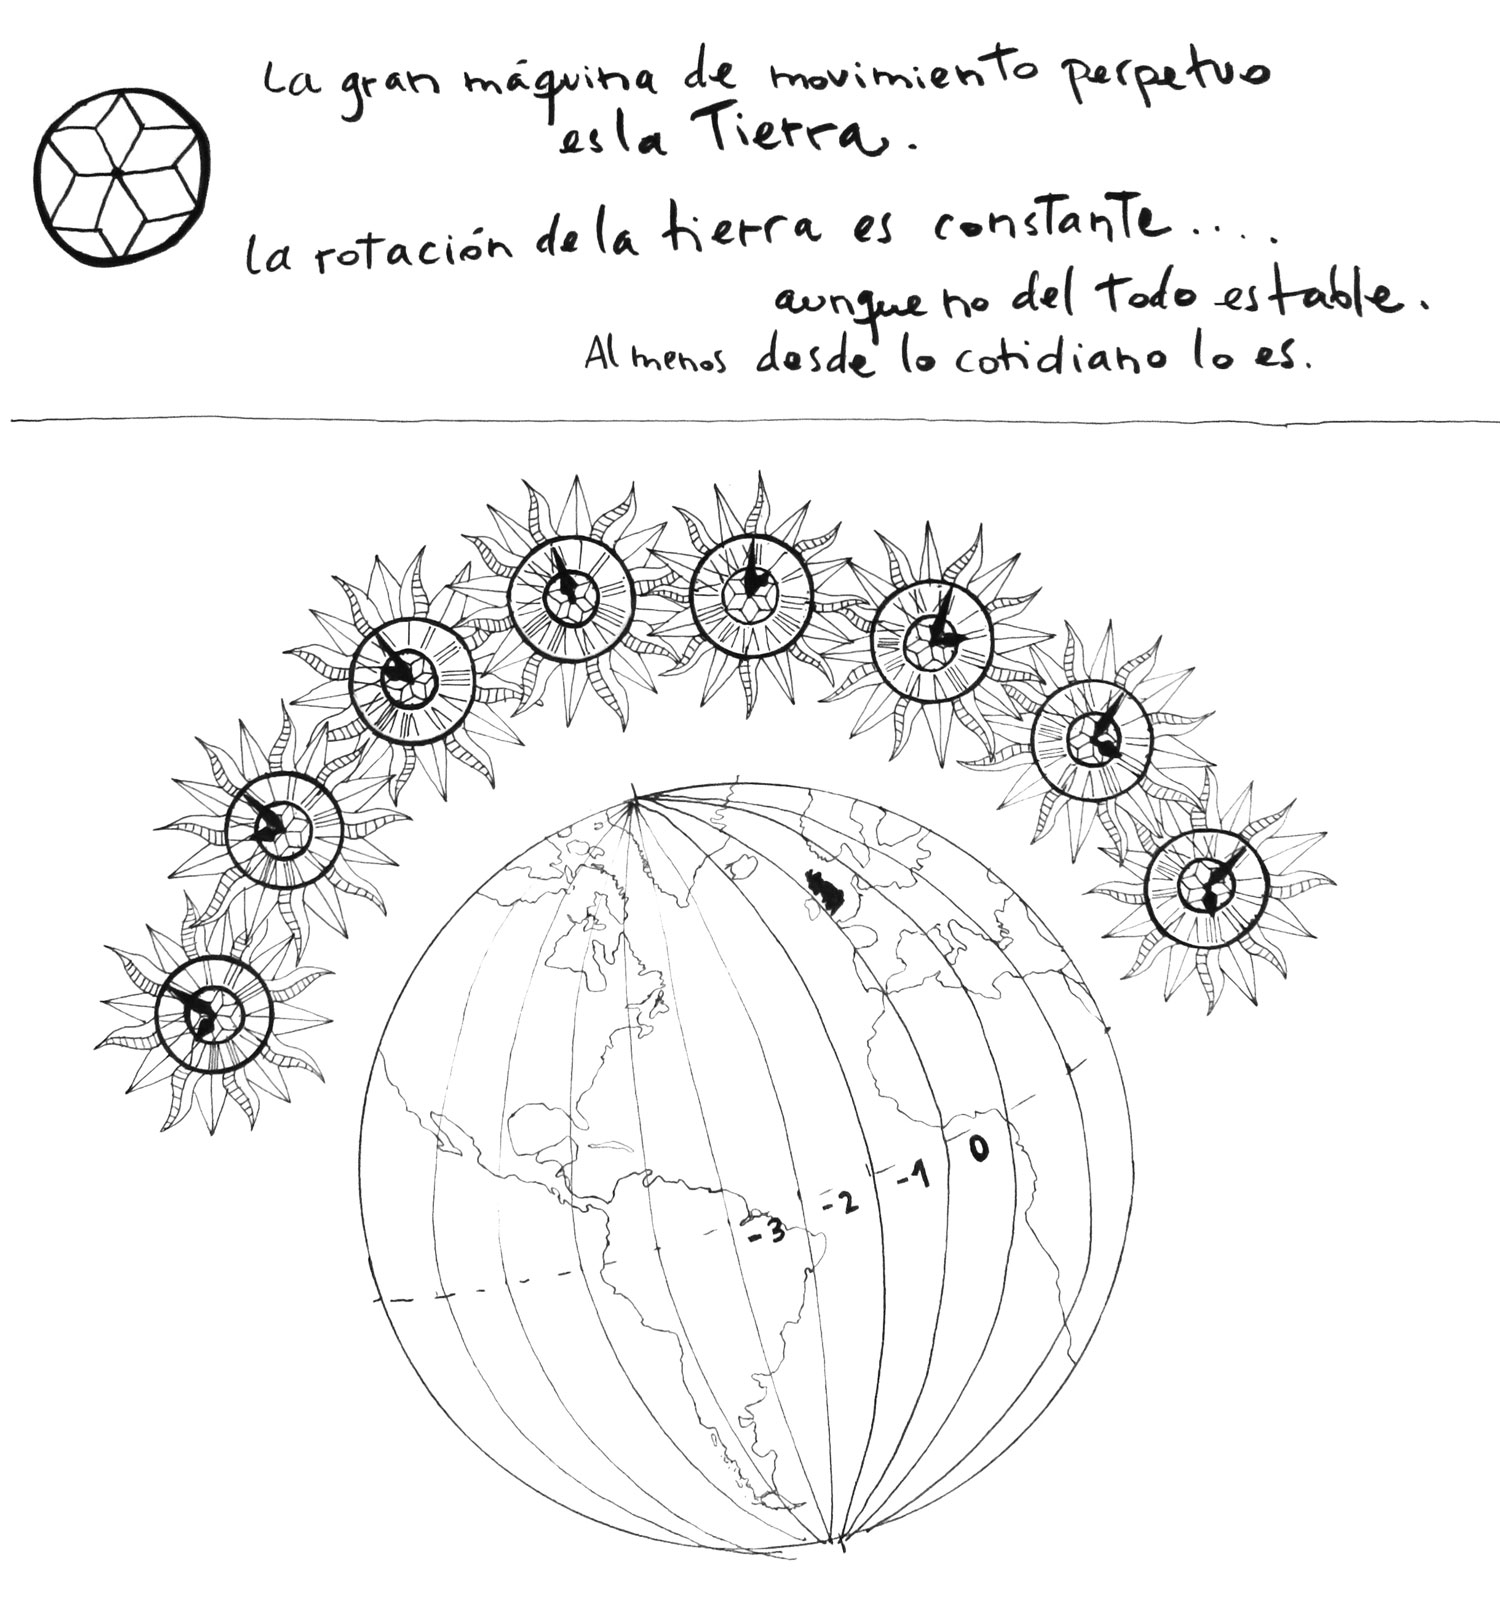 La gran máquina de movimiento perpetuo
es la Tierra.
La rotación de la tierra es constante....
aunque no del todo estable.
Al menos desde lo cotidiano lo es.
0
-1
-2
-3